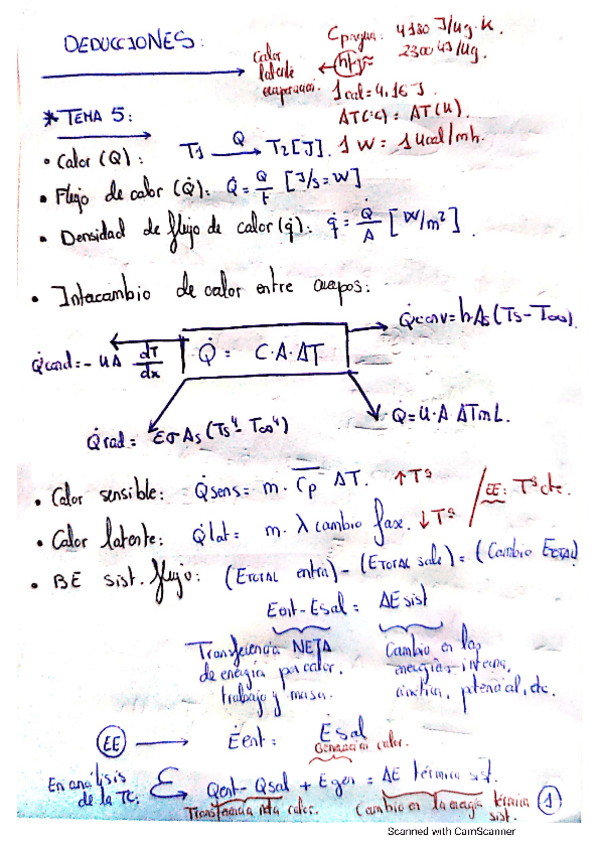 DEDUCCIONES:
Cpagua: 4180 J/kg·K.
2300 kJ/kg.
Calor latente evaporación.
1 cal = 4,16 J.
ΔT(ºC) = ΔT(K).
* TEMA 5:
1 W = 1 kcal/mh.
• Calor (Q): T1 Q T2 [J].
• Flujo de calor (Q̇): Q̇ = Q/t [J/s = W]
• Densidad de flujo de calor (q̇): q̇ = Q̇/A [W/m²].
• Intercambio de calor entre cuerpos:
Q̇conv = h·As (Ts - T∞).
Q̇cond = - kA dT/dx
Q̇ = C·A·ΔT
Q̇ = U·A ΔTmL.
Q̇rad = εσAs (Ts⁴ - T∞⁴)
• Calor sensible: Q̇sens = m. Cp ΔT. ↑Tª
/EE: Tª cte.
• Calor latente: Q̇lat = m. λ cambio fase. ↓Tª
• BE sist. flujo: (ETOTAL entra) - (ETOTAL sale) = (Cambio ETOTAL)
Eent - Esal = ΔEsist
Transferencia NETA de energía por calor, trabajo y masa.
Cambio en las energías interna, cinética, potencial, etc.
(EE) → Ėent = Ėsal
Generación calor.
En análisis de la TC: Qent - Qsal + Egen = ΔE térmica sist.
Transferencia neta calor.
Cambio en la energía térmica sist.
1
Scanned with CamScanner